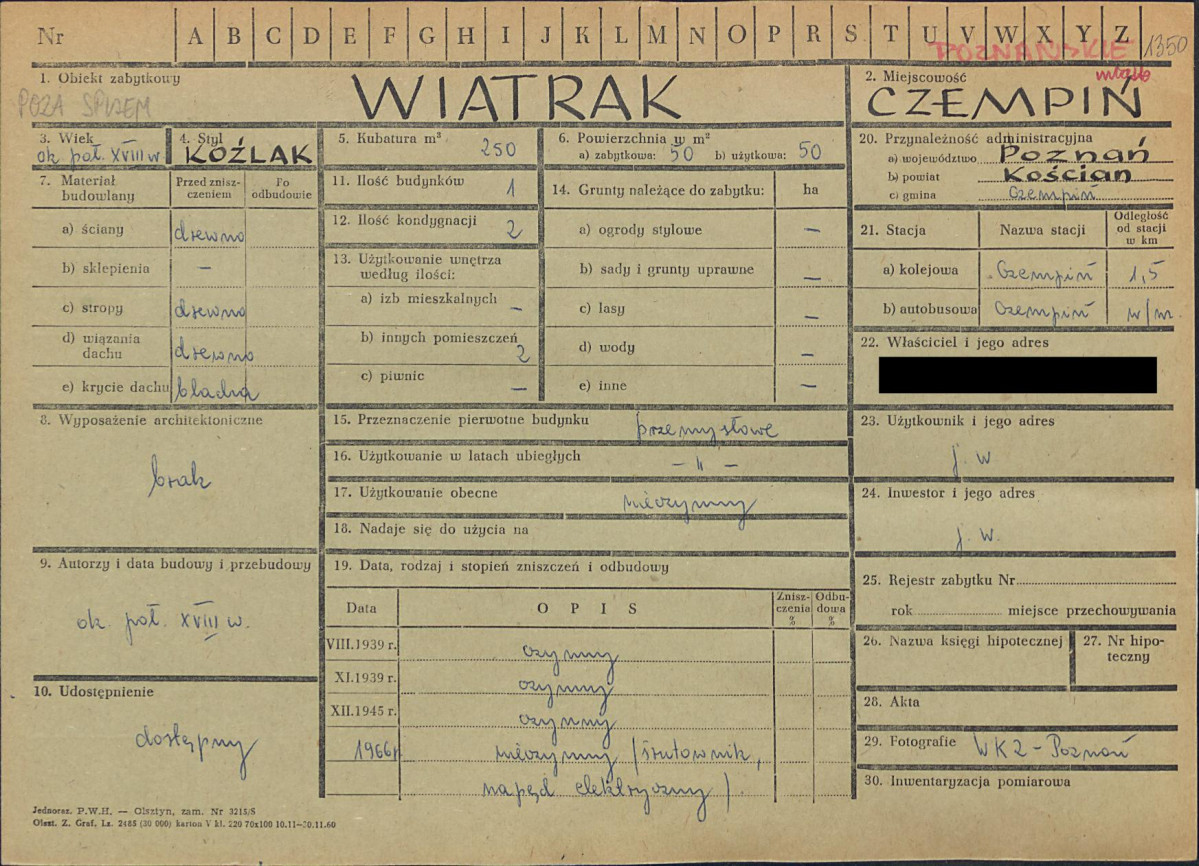 Nr A B C D E F G H I J K L M N O P R S T U V W X Y Z
POZNAŃSKIE 1350
miasto
1. Obiekt zabytkowy
WIATRAK
2. Miejscowość
CZEMPIŃ
3. Wiek
ok. poł. XVIII w.
4. Styl
KOŹLAK
5. Kubatura m³ 250
6. Powierzchnia w m²
a) zabytkowa: 50 b) użytkowa: 50
20. Przynależność administracyjna
a) województwo Poznań
b) powiat Kościan
c) gmina Czempiń
7. Materiał budowlany
Przed zniszczeniem
Po odbudowie
a) ściany drewno
b) sklepienia —
c) stropy drewno
d) wiązania dachu drewno
e) krycie dachu blacha
11. Ilość budynków 1
12. Ilość kondygnacji 2
13. Użytkowanie wnętrza
według ilości:
a) izb mieszkalnych —
b) innych pomieszczeń 2
c) piwnic —
14. Grunty należące do zabytku: ha
a) ogrody stylowe —
b) sady i grunty uprawne —
c) lasy —
d) wody —
e) inne —
21. Stacja Nazwa stacji Odległość od stacji w km
a) kolejowa Czempiń 1,5
b) autobusowa Czempiń w/m.
22. Właściciel i jego adres
8. Wyposażenie architektoniczne
brak
15. Przeznaczenie pierwotne budynku przemysłowe
16. Użytkowanie w latach ubiegłych — 〃 —
17. Użytkowanie obecne nieczynny
18. Nadaje się do użycia na
23. Użytkownik i jego adres
j. w
24. Inwestor i jego adres
j. w.
9. Autorzy i data budowy i przebudowy
ok. poł. XVIII w.
19. Data, rodzaj i stopień zniszczeń i odbudowy
Data OPIS Zniszczenia % Odbudowa %
VIII.1939 r. czynny
XI.1939 r. czynny
XII.1945 r. czynny
1966 r nieczynny (śrutownik,
napęd elektryczny).
25. Rejestr zabytku Nr
rok miejsce przechowywania
26. Nazwa księgi hipotecznej
27. Nr hipoteczny
28. Akta
29. Fotografie WKZ - Poznań
30. Inwentaryzacja pomiarowa
10. Udostępnienie
dostępny
Jednoraz. P.W.H. — Olsztyn, zam. Nr 3215/S
Olszt. Z. Graf. Lz. 2485 (30 000) karton V kl. 220 70x100 10.11—30.11.60